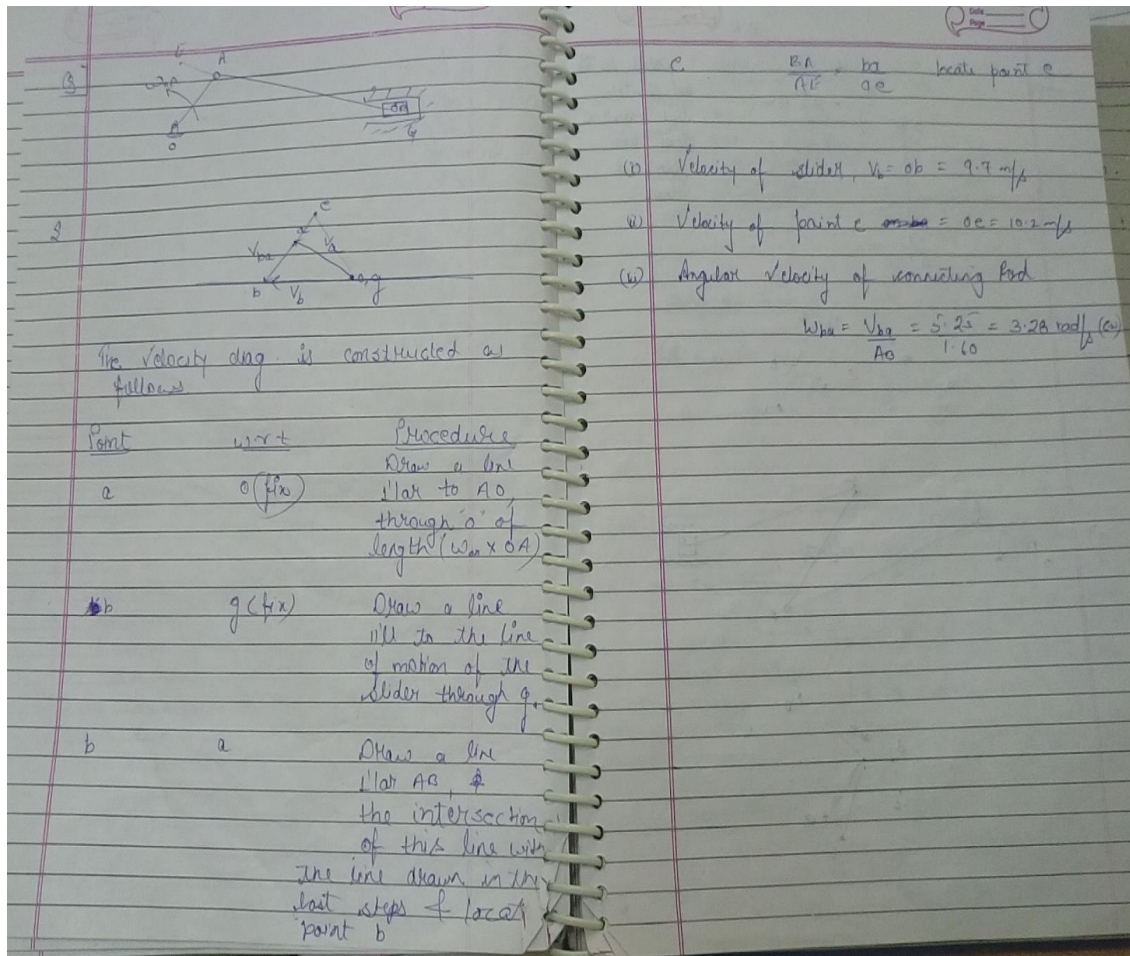 Q
E
A
O
B
G
Date
Page
e
a
Vba
Va
b
Vb
o,g
The velocity diag. is constructed as
follows
Point w.r.t Procedure
a o (fix) Draw a line
⊥lar to AO,
through 'o' of
length (ωao × OA)
b g (fix) Draw a line
||ll to the line
of motion of the
slider through g.
b a Draw a line
⊥lar AB,
the intersection
of this line with
the line drawn in the
last steps & locat
point b
e BA/AE = ba/ae locate point e
(i) Velocity of slider, Vb = ob = 9.7 m/s
(ii) Velocity of point e = oe = 10.2 m/s
(iii) Angular Velocity of connecting Rod
Wba = Vba/AB = 5.25/1.60 = 3.28 rad/s